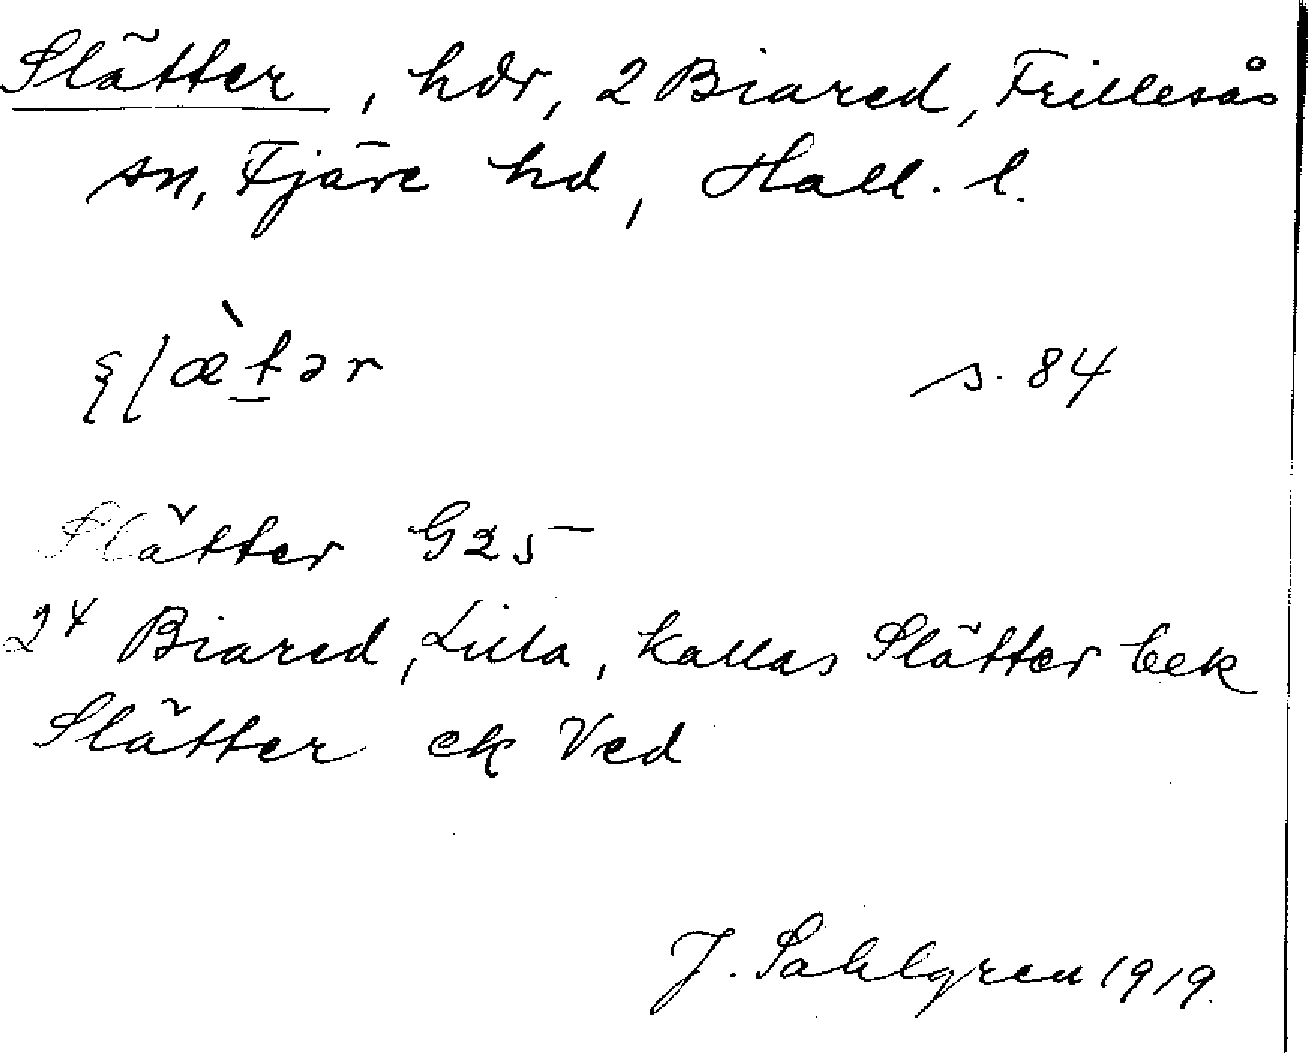 Slätter, hdr, 2 Biared, Frillesås
sn, Fjäre hd, Hall. l.
ʂlæ̀tər s. 84
Slätter G25
2⁴ Biared, Lilla, kallas Slätter bek
Slätter ek Ved
J. Sahlgren 1919.